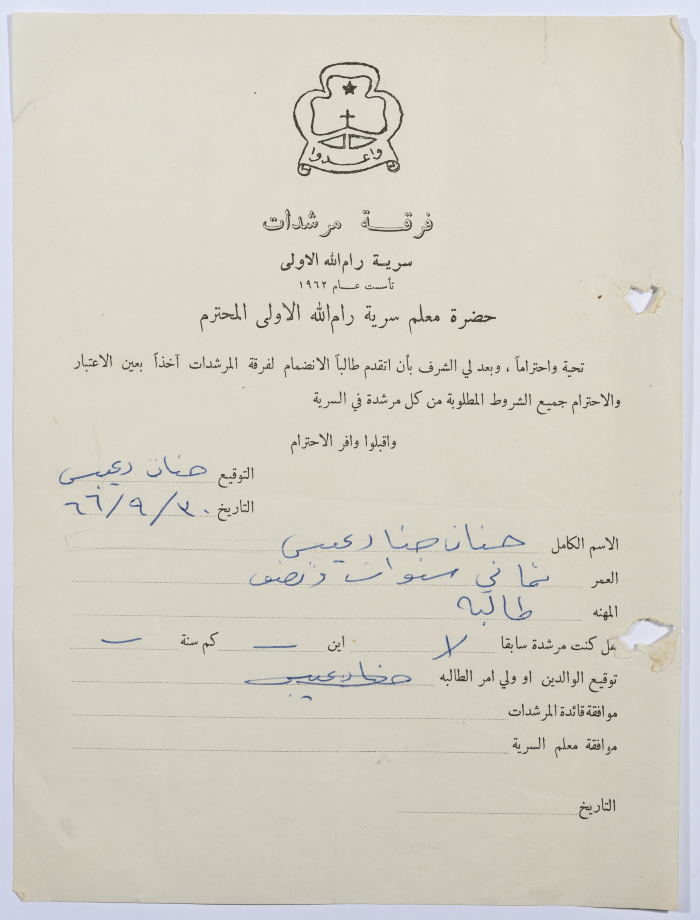 واعدوا
فرقة مرشدات
سرية رام الله الاولى
تأسست عام ١٩٦٢
حضرة معلم سرية رام الله الاولى المحترم
تحية واحتراماً ، وبعد لي الشرف بأن اتقدم طالباً الانضمام لفرقة المرشدات آخذاً بعين الاعتبار
والاحترام جميع الشروط المطلوبة من كل مرشدة في السرية
واقبلوا وافر الاحترام
التوقيع حنان دعيبس
التاريخ ٣٠/٩/٦٦
الاسم الكامل حنان حنا دعيبس
العمر ثماني سنوات ونصف
المهنه طالبه
هل كنت مرشدة سابقا لا اين — كم سنة —
توقيع الوالدين او ولي امر الطالبه حنا دعيبس
موافقة قائدة المرشدات
موافقة معلم السرية
التاريخ